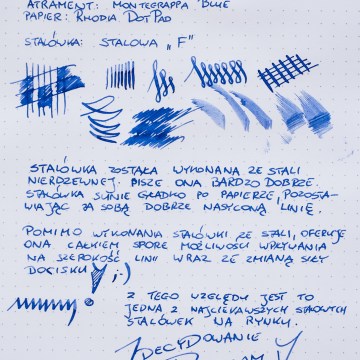 ATRAMENT: MONTEGRAPPA BLUE
PAPIER: RHODIA DOTPAD
STALÓWKA: STALOWA „F"
STALÓWKA ZOSTAŁA WYKONANA ZE STALI
NIERDZEWNEJ. PISZE ONA BARDZO DOBRZE.
STALÓWKA SUNIE GŁADKO PO PAPIERZE, POZOSTA-
WIAJĄC ZA SOBĄ DOBRZE NASYCONĄ LINIĘ.
POMIMO WYKONANIA STALÓWKI ZE STALI, OFERUJE
ONA CAŁKIEM SPORE MOŻLIWOŚCI WPŁYWANIA
NA SZEROKOŚĆ LINII WRAZ ZE ZMIANĄ SIŁY
DOCISKU ;-)
Z TEGO WZGLĘDU JEST TO
JEDNA Z NAJCIEKAWSZYCH STALOWYCH
STALÓWEK NA RYNKU.
ZDECYDOWANIE